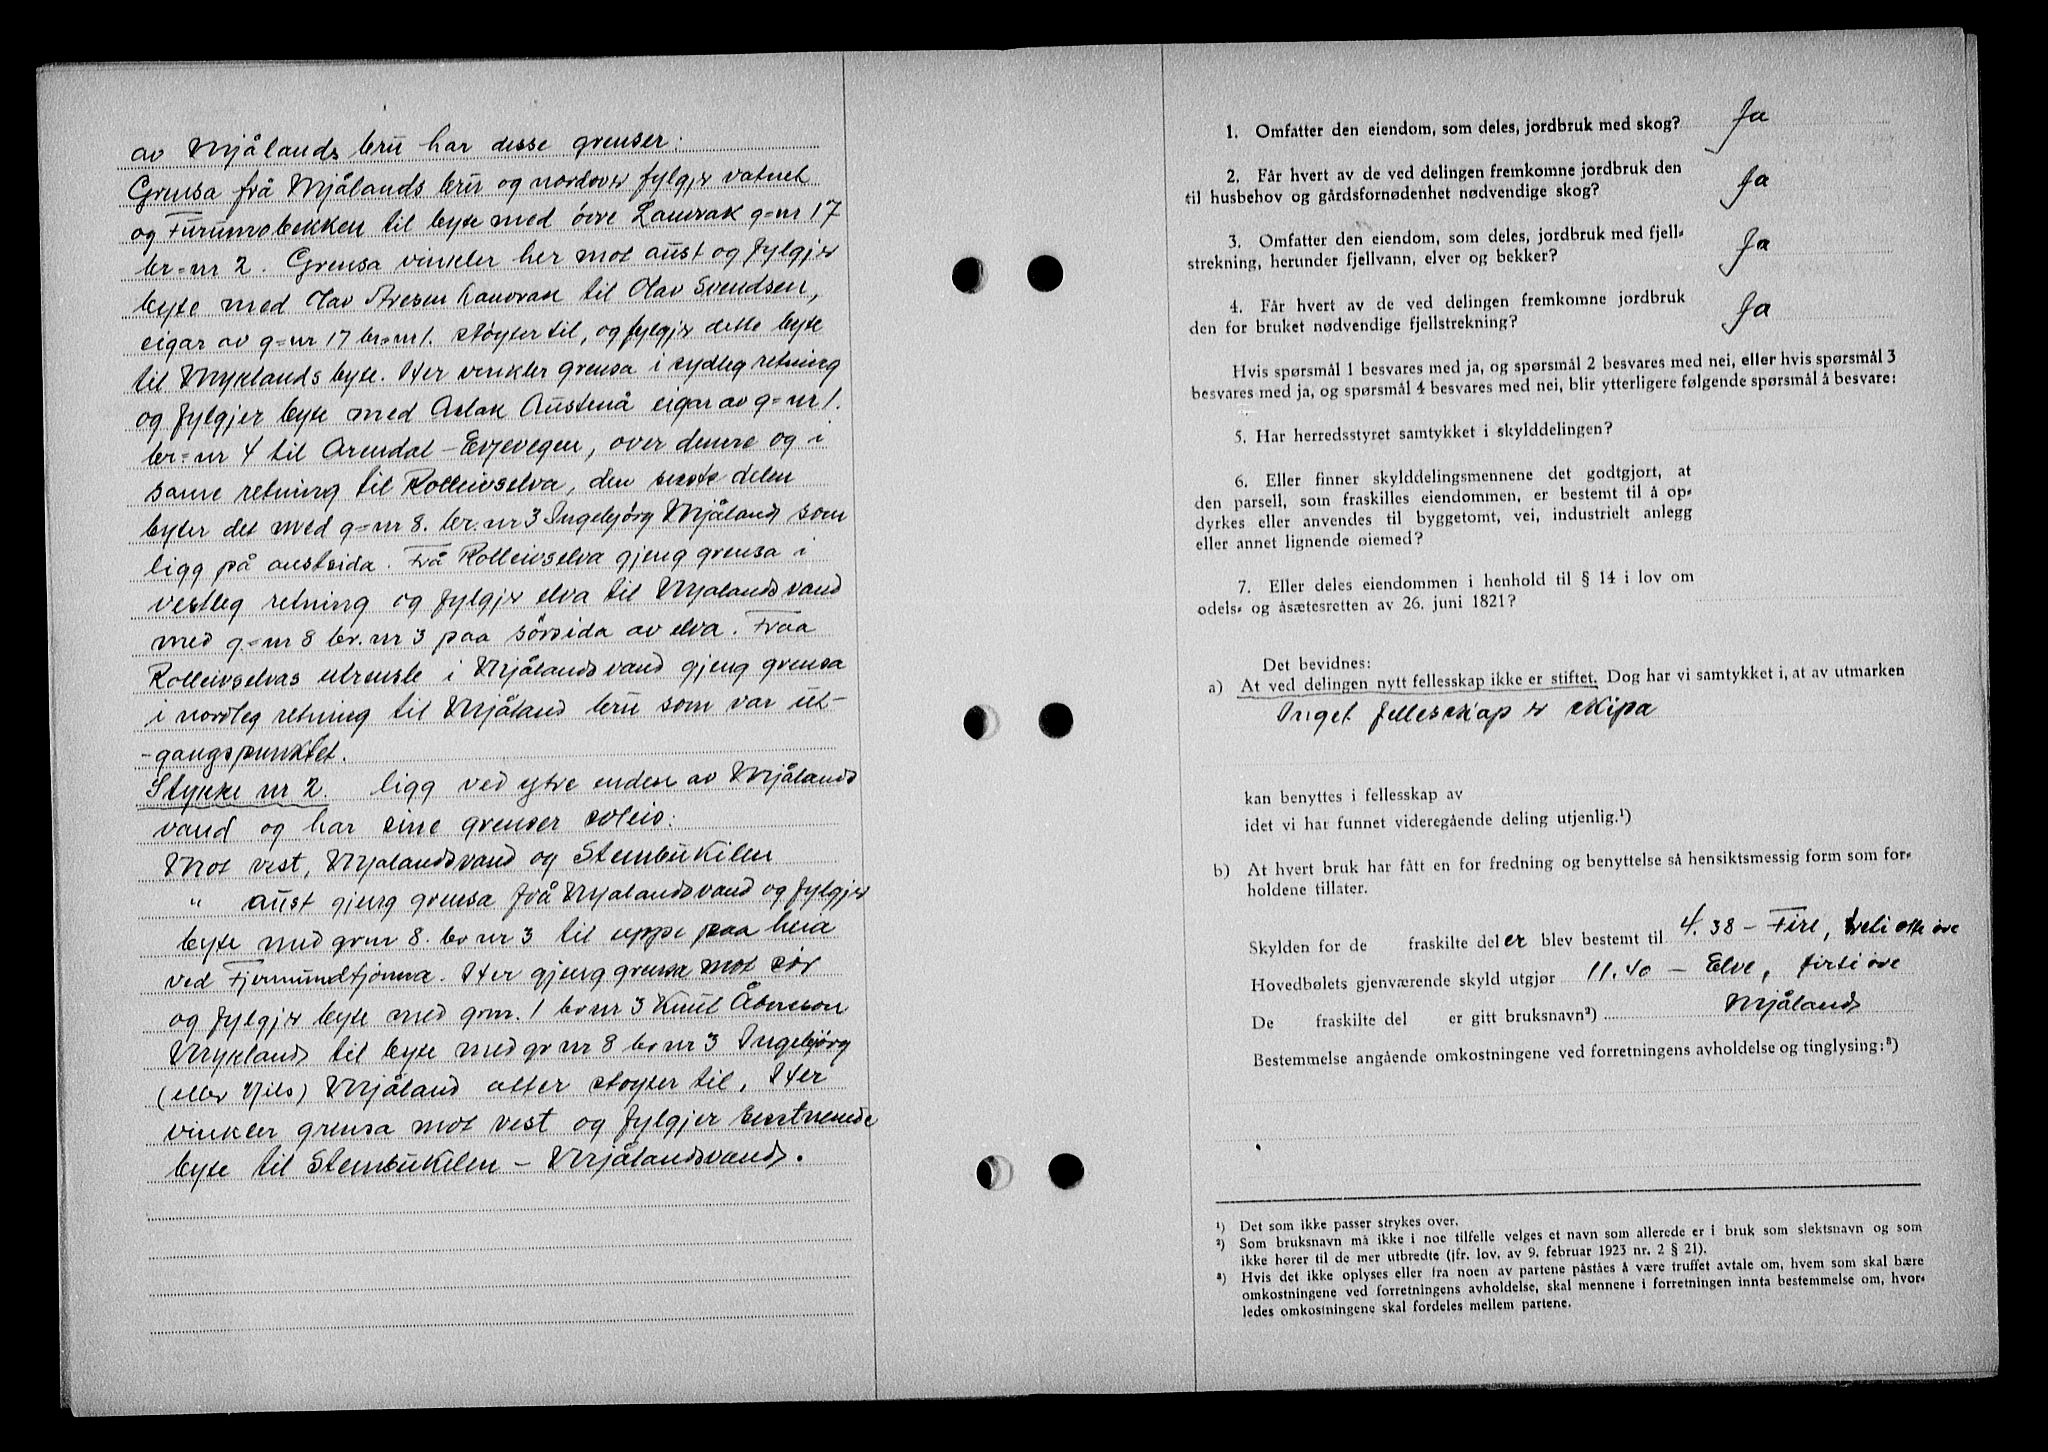 av Mjålands bru har desse grenser:
Grensa frå Mjålands bru og nordover fylgjer vatnet
og Furumobekken til byte med övre Lauvrak g=nr 17
br=nr 2. Grensa vinkler her mot aust og fylgjer
byte med Olav Aresen Lauvrak til Olav Svendsen,
eigar av g=nr 17 br=nr 1. støyter til, og fylgjer dette byte
til Myklands byte. Her vinkler grensa i sydleg retning
og fylgjer byte med Aslak Austenå eigar av g=nr 1.
br=nr 4 til Arendal-Evjevegen, over denne og i
same retning til Rolleivselva, den siste delen
byter det med g=nr 8. br. nr 3 Ingebjörg Mjåland som
ligg på austsida. Frå Rolleivselva gjeng grensa i
vestleg retning og fylgjer elva til Mjalandsvand
med g=nr 8 br. nr 3 paa sörsida av elva. Fraa
Rolleivselvas utrensle i Mjålandsvand gjeng grensa
i nordleg retning til Mjåland bru som var ut-
-gangspunktet.
Stykke nr 2. ligg ved ytre enden av Mjålands
vand og har sine grenser soleis:
Mot vest, Mjalandsvand og Stembukilen
" aust gjeng grensa frå Mjalandsvand og fylgjer
byte med grnr 8. br nr 3 til uppe paa heia
ved Fjermundtjönna. Her gjeng grensa mot sör
og fylgjer byte med grnr. 1 br nr 3 Knut Åbneson
Mykland til byte med gr nr 8 br nr 3 Ingebjörg
(eller Nils) Mjåland atter støyter til. Her
vinkler grensa mot vest og fylgjer sistnemnde
byte til Stembukilen - Mjålandsvand.
1. Omfatter den eiendom, som deles, jordbruk med skog? Ja
2. Får hvert av de ved delingen fremkomne jordbruk den
til husbehov og gårdsfornødenhet nødvendige skog? Ja
3. Omfatter den eiendom, som deles, jordbruk med fjell-
strekning, herunder fjellvann, elver og bekker? Ja
4. Får hvert av de ved delingen fremkomne jordbruk
den for bruket nødvendige fjellstrekning? Ja
Hvis spørsmål 1 besvares med ja, og spørsmål 2 besvares med nei, eller hvis spørsmål 3
besvares med ja, og spørsmål 4 besvares med nei, blir ytterligere følgende spørsmål å besvare:
5. Har herredsstyret samtykket i skylddelingen?
6. Eller finner skylddelingsmennene det godtgjort, at
den parsell, som fraskilles eiendommen, er bestemt til å op-
dyrkes eller anvendes til byggetomt, vei, industrielt anlegg
eller annet lignende øiemed?
7. Eller deles eiendommen i henhold til § 14 i lov om
odels- og åsætesretten av 26. juni 1821?
Det bevidnes:
a) At ved delingen nytt fellesskap ikke er stiftet. Dog har vi samtykket i, at av utmarken
Inget felleskap er skipa
kan benyttes i fellesskap av
idet vi har funnet videregående deling utjenlig.¹)
b) At hvert bruk har fått en for fredning og benyttelse så hensiktsmessig form som for-
holdene tillater.
Skylden for de fraskilte deler blev bestemt til 4.38 - Fire, treti otte öre
Hovedbølets gjenværende skyld utgjør 11.40 - Elve, firti öre
De fraskilte del er gitt bruksnavn²) Mjåland
Bestemmelse angående omkostningene ved forretningens avholdelse og tinglysing:³)
¹) Det som ikke passer strykes over.
²) Som bruksnavn må ikke i noe tilfelle velges et navn som allerede er i bruk som slektsnavn og som
ikke hører til de mer utbredte (jfr. lov. av 9. februar 1923 nr. 2 § 21).
³) Hvis det ikke oplyses eller fra noen av partene påståes å være truffet avtale om, hvem som skal bære
omkostningene ved forretningens avholdelse, skal mennene i forretningen innta bestemmelse om, hvor-
ledes omkostningene skal fordeles mellem partene.